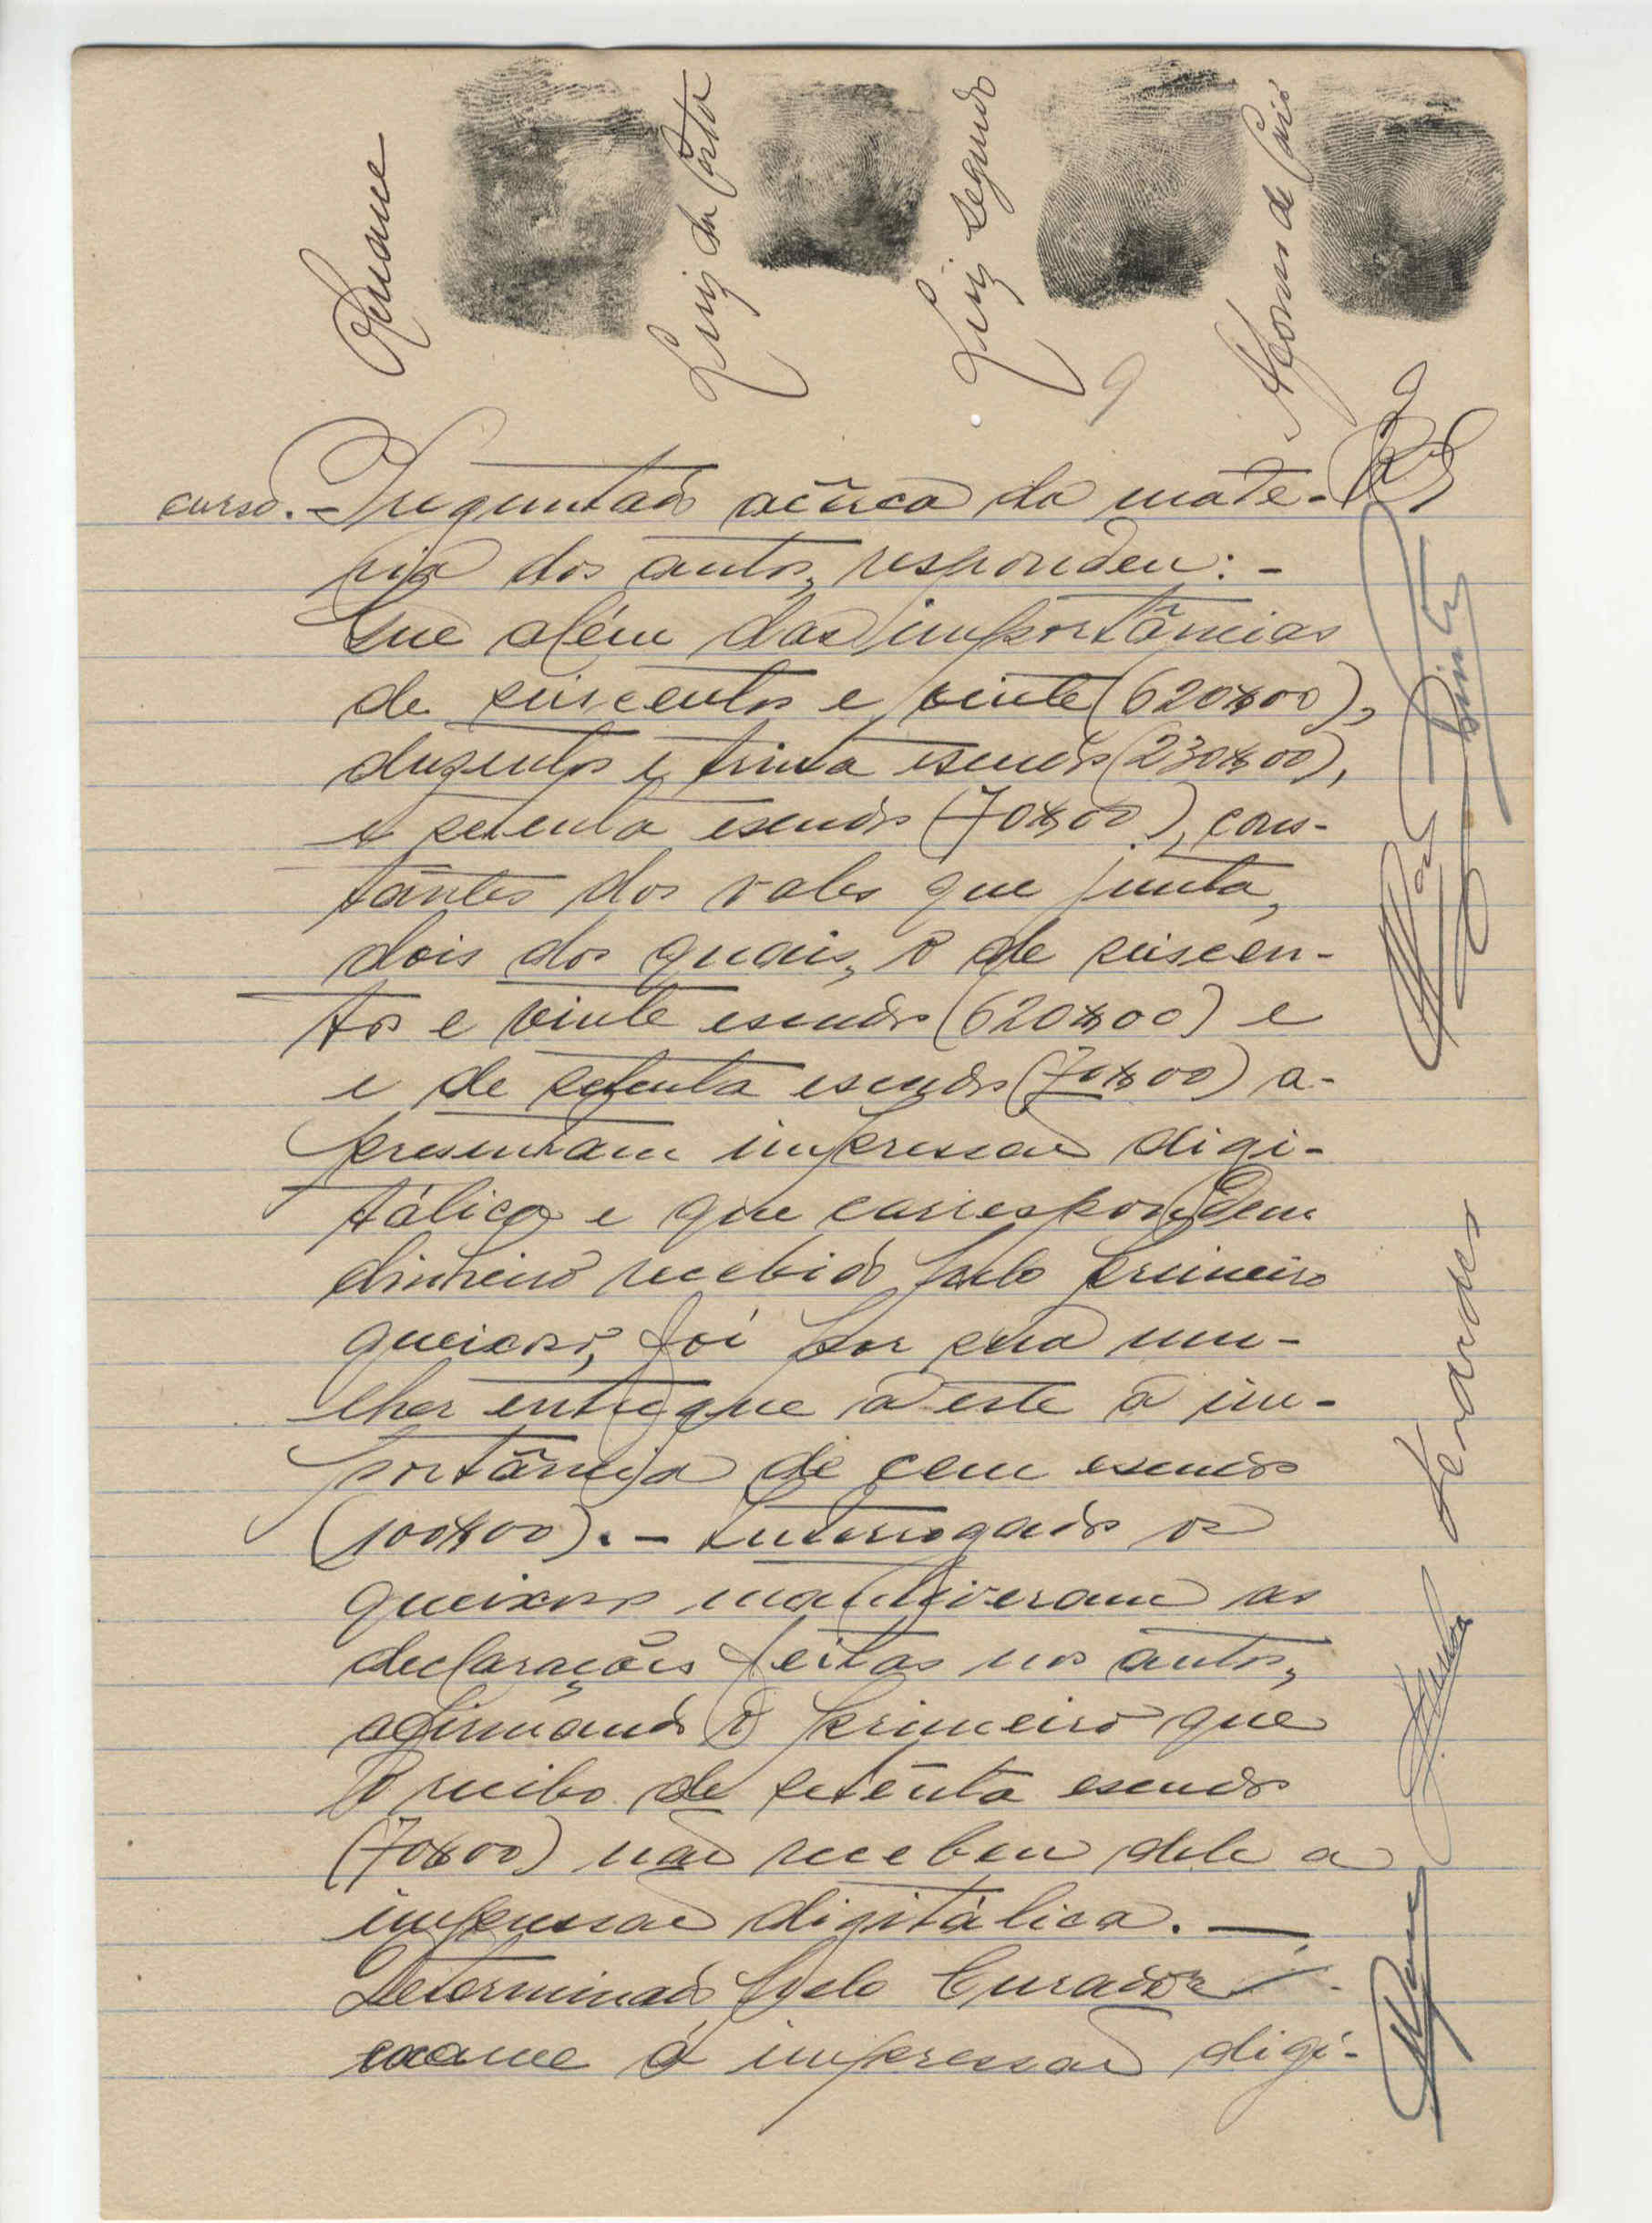 Luiz da Costa
Luiz Segundo
curso. - Preguntado acêrca da maté-
ria dos autos, respondeu: -
Que além das importâncias
de seiscentos e vinte (620$00),
duzentos e trinta escudos (230$00),
e setenta escudos (70$00), cons-
tantes dos vales que junta,
dois dos quais, o de seiscen-
tos e vinte escudos (620$00) e
e de setenta escudos (70$00) a-
presentam impressão digi-
tálica e que correspondem
dinheiro recebido pelo primeiro
queixoso, foi por sua mu-
lher entregue a este a im-
portância de cem escudos
(100$00). - Interrogados os
queixosos mantiveram as
declarações feitas nos autos,
afirmando o primeiro que
o recibo de setenta escudos
(70$00) não recebeu dele a
impressão digitálica. —
Determinado pelo Curador
exame á impressão digi-